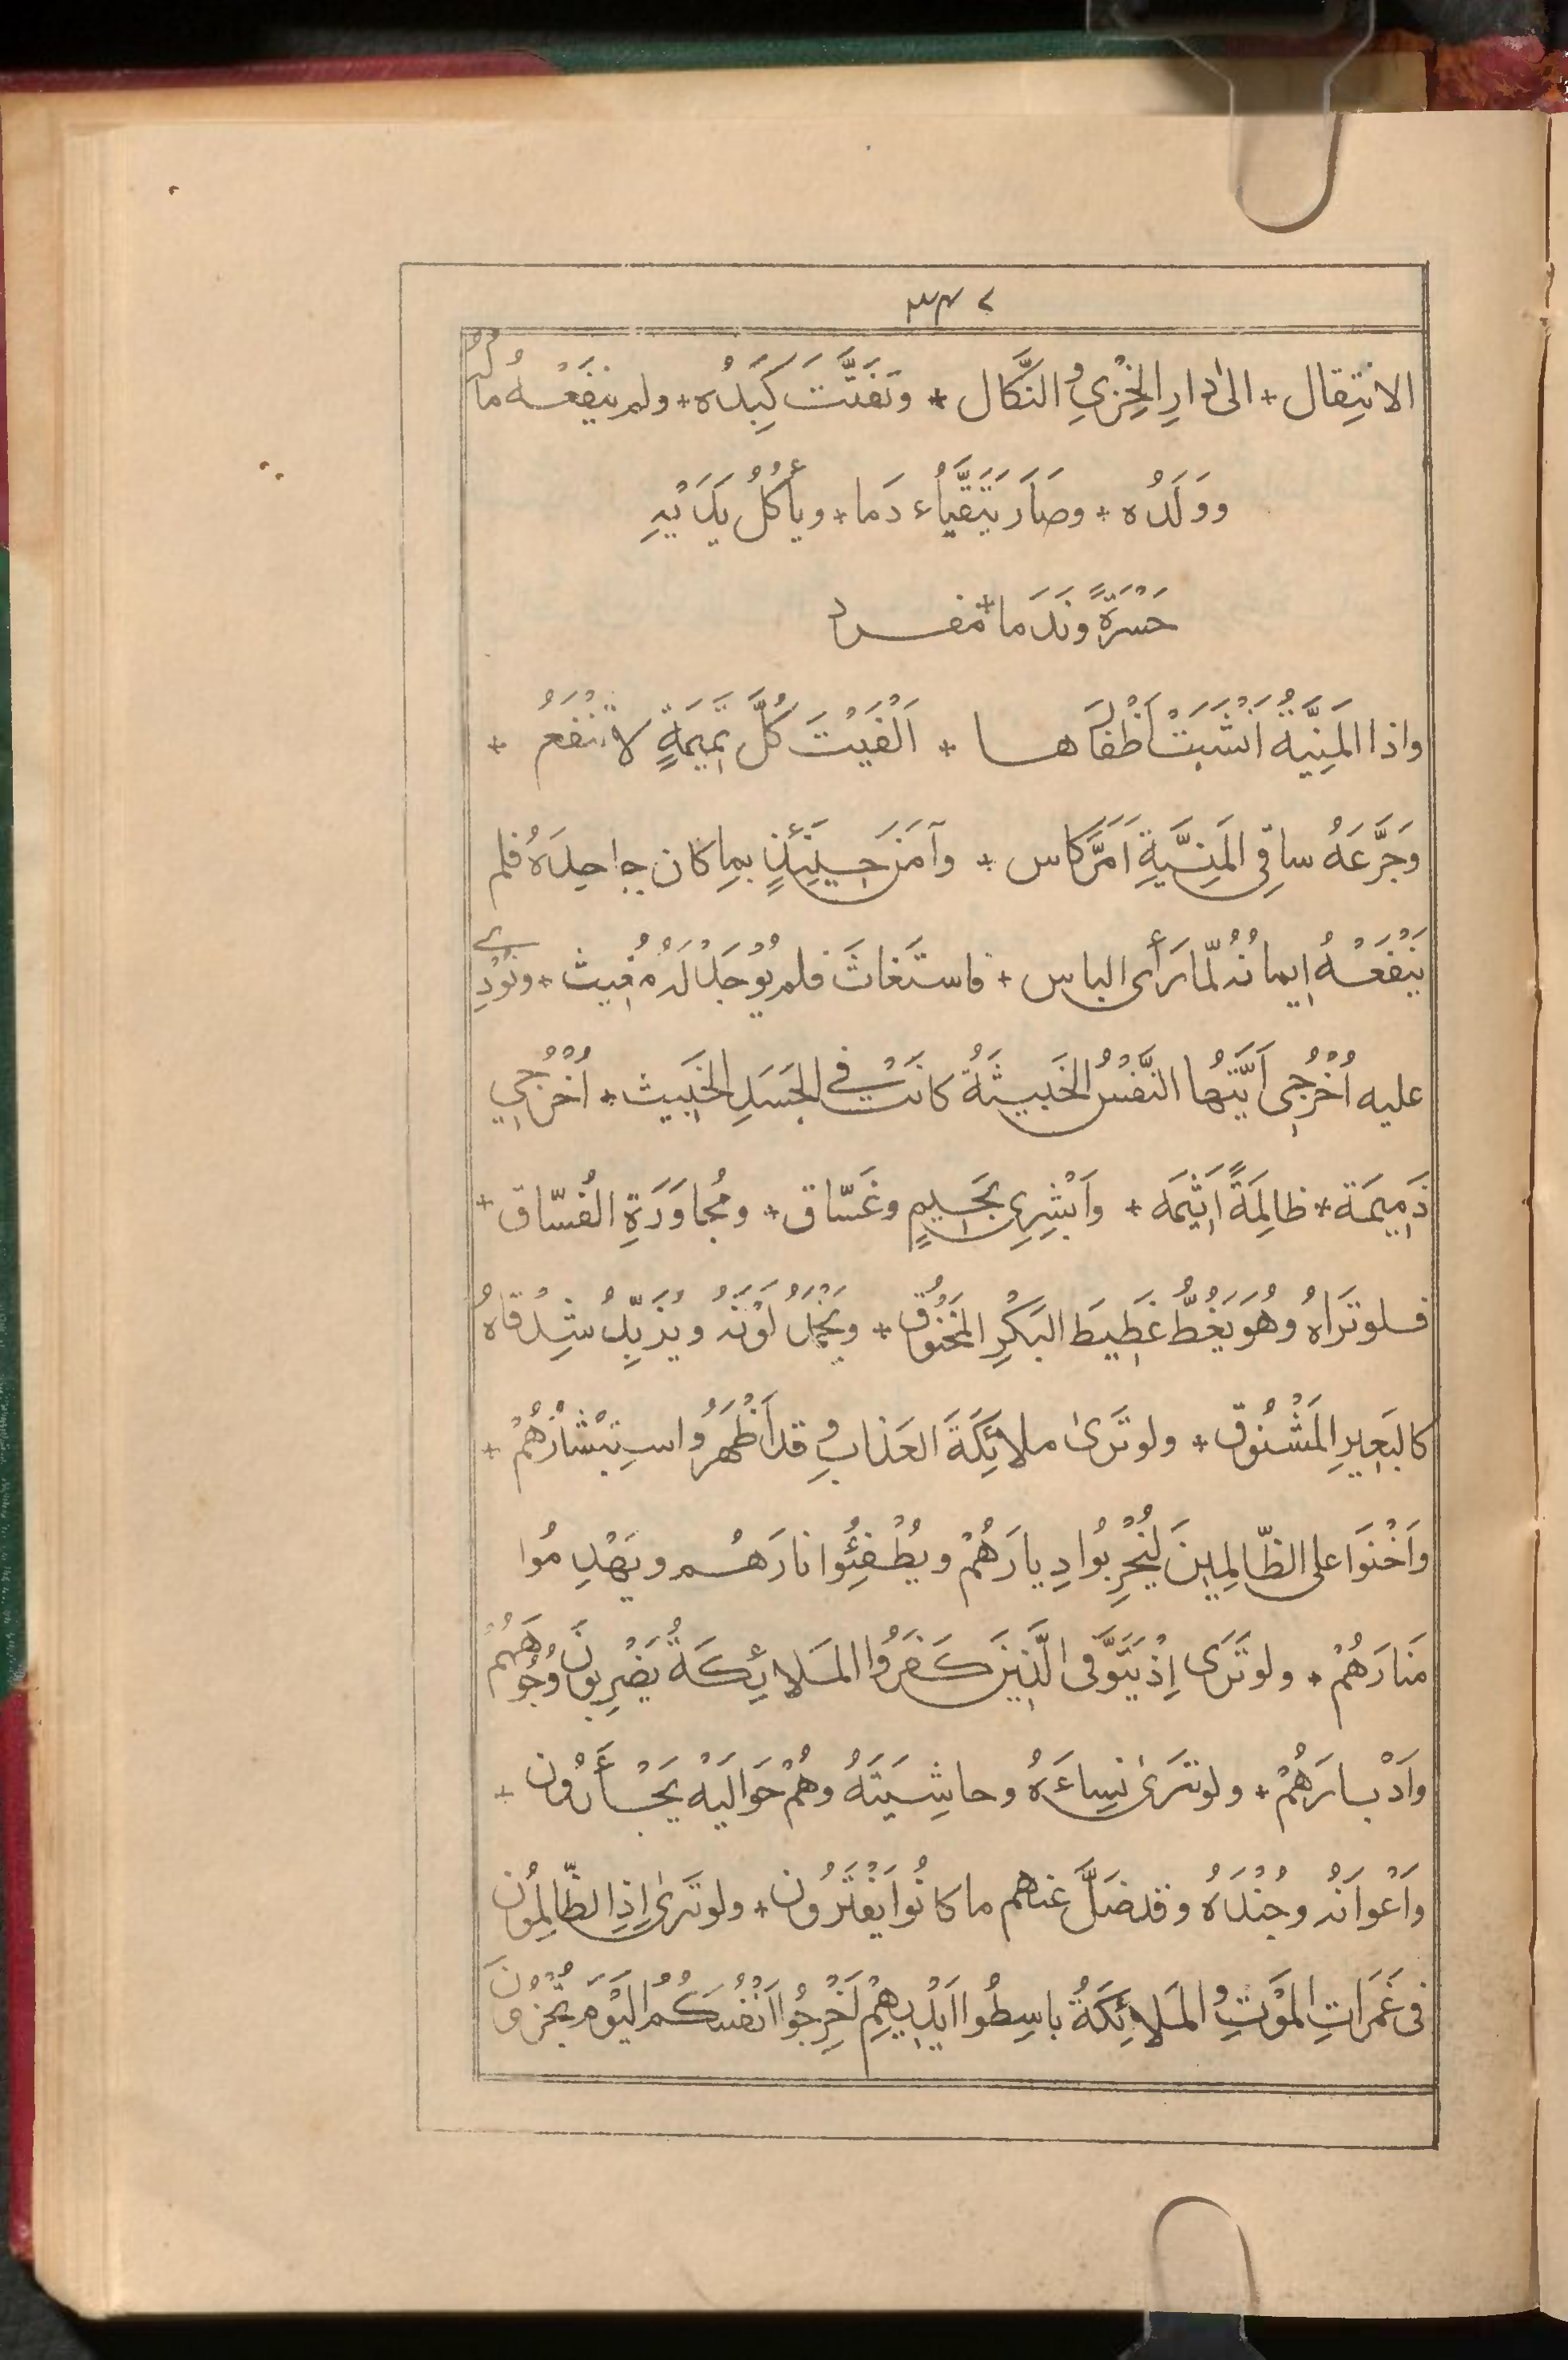 ٣٣٤
الانتِقال * الىٰ دارِ الخِزْيِ والنَّكال * وتَفَتَّتَ كَبِدُه * ولم يَنفَعْهُ مالُهُ
ووَلَدُه * وصَارَ يَتَقَيَّاُء دَما * ويأكُلُ يَدَيْهِ
حَسْرَةً ونَدَما * مفرد
واذا المَنِيَّةُ اَنْشَبَتْ اَظْفَارَها * اَلْفَيْتَ كُلَّ تَمِيمَةٍ لا تَنْفَعُ *
وَجَرَّعَهُ ساقِى المَنِيَّةِ اَمَرَّ كاس * وآمَنَ حِينَئِذٍ بمِا كان جاحِدَهُ فلم
يَنْفَعْهُ اِيمانُهُ لمّا رَأى الباس * فاستَغاثَ فلم يُوْجَدْ لَهُ مُغِيث * ونُوْدِي
عليه اُخْرُجِى اَيَّتُها النَّفْسُ الخَبِيثَةُ كانَتْ في الجَسَدِ الخَبِيث * اُخْرُجِي
ذَمِيمَة * ظالِمَةً اَثِيمَه * واَبْشِرِي بحَمِيمٍ وغَسّاق * ومُجاوَرَةِ الفُسّاق *
فلو تَرَاهُ وهُوَ يَغُطُّ غَطِيطَ البَكْرِ المَخْنُوْق * ويَخْمَدُ لَوْنُهُ ويُزَبِّدُ شِدْقاهُ
كالبَعِيرِ المَشْنُوْق * ولو تَرىٰ ملائِكَةَ العَذابِ وقد اَظْهَرُوا استِبْشَارَهُمْ *
واَخْنَوَا على الظّالِمِينَ لِيُخْرِبُوا دِيارَهُمْ ويُطْفِئُوا نارَهُم ويَهْدِمُوا
مَنارَهُمْ * ولو تَرَى اِذْ يَتَوَفَّى الَّذِينَ كَفَرُوا المَلائِكَةُ يَضْرِبُونَ وُجُوهَهُمْ
واَدْبارَهُمْ * ولو ترَىٰ نِساءَهُ وحاشِيَتَهُ وهُمْ حَوالَيْهُ يَجْأَرُون *
واَعْوانَهُ وجُنْدَهُ وقد ضَلَّ عنهم ما كانُوا يَفْتَرُون * ولو ترَىٰ اِذِ الظّالِمُون
فى غَمَراتِ المَوْتِ والمَلائِكَةُ باسِطُوا اَيْدِيهِمْ اَخْرِجُوا اَنْفُسَكُمُ اليَوْمَ تُجْزَوْنَ